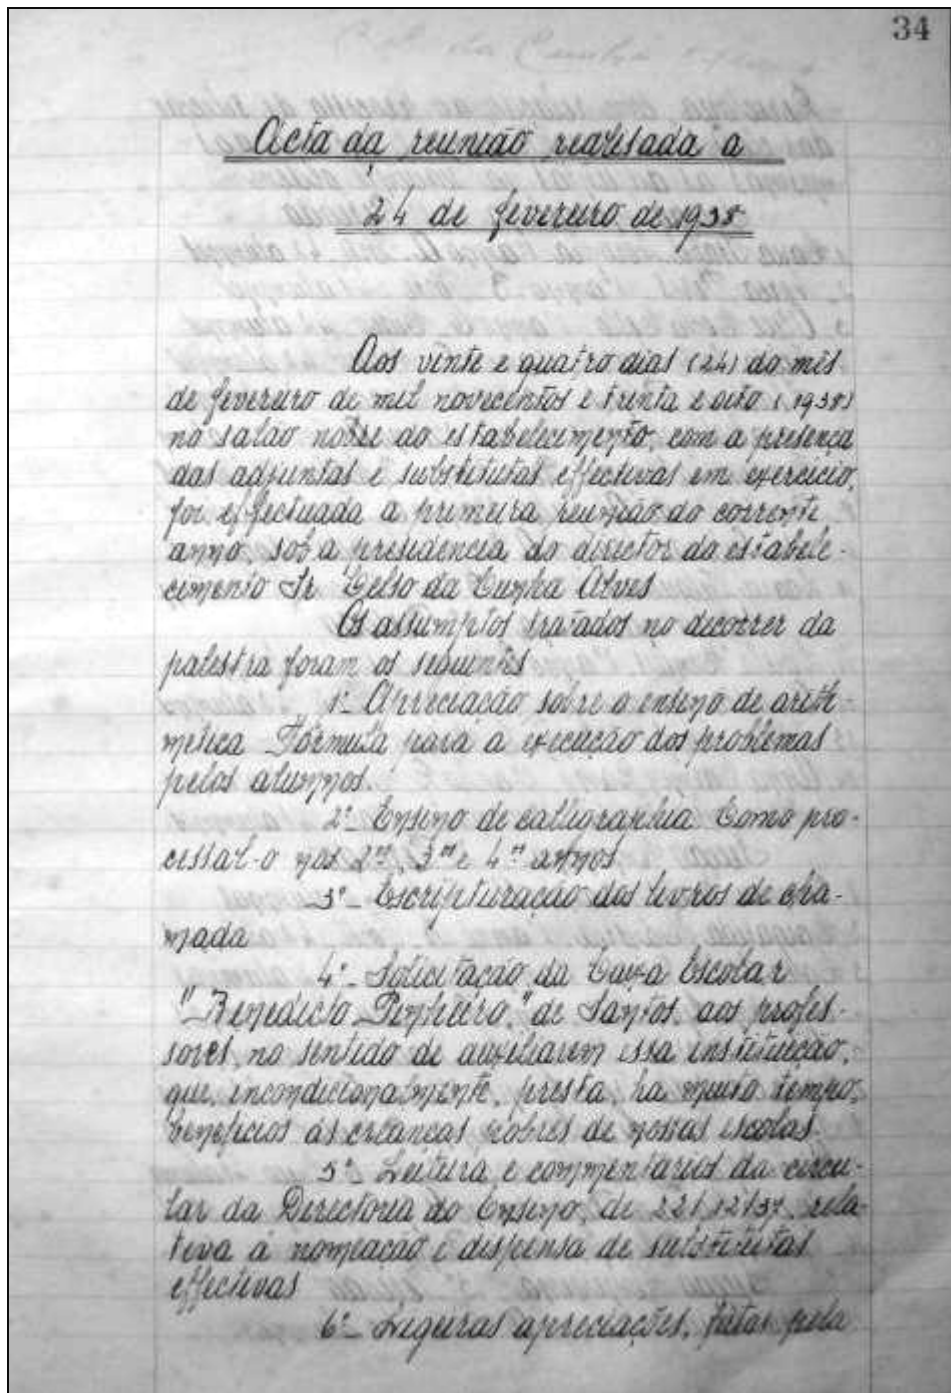 34
Acta da reunião realisada a
24 de fevereiro de 1938
Aos vinte e quatro dias (24) do mês
de fevereiro de mil novecentos e trinta e oito (1938)
no salão nobre do estabelecimento, com a presença
das adjuntas e substitutas effectivas em exercicio,
foi effectuada a primeira reunião do corrente
anno, sob a presidencia do director do estabele-
cimento Sr. Celso da Cunha Alves
Os assumptos tratados no decorrer da
palestra foram os seguintes
1º- Apreciação sobre o ensino de arith-
metica Fórmula para a execução dos problemas
pelos alumnos.
2º- Ensino de calligraphia Como pro-
cessal-o nos 2ºs, 3ºs e 4ºs annos
3º- Escripturação dos livros de cha-
mada
4º- Solicitação da Caixa Escolar
"Benedicto Pinheiro," de Santos, aos profes-
sores, no sentido de auxiliarem essa instituição,
que, incondicionalmente, presta, ha muito tempo,
beneficios ás creanças pobres de nossas escolas.
5º- Leitura e commentarios da circu-
lar da Directoria do Ensino, de 22/12/37, rela-
tiva á nomeação e dispensa de substitutas
effectivas
6º- Ligeiras apreciações, feitas pela